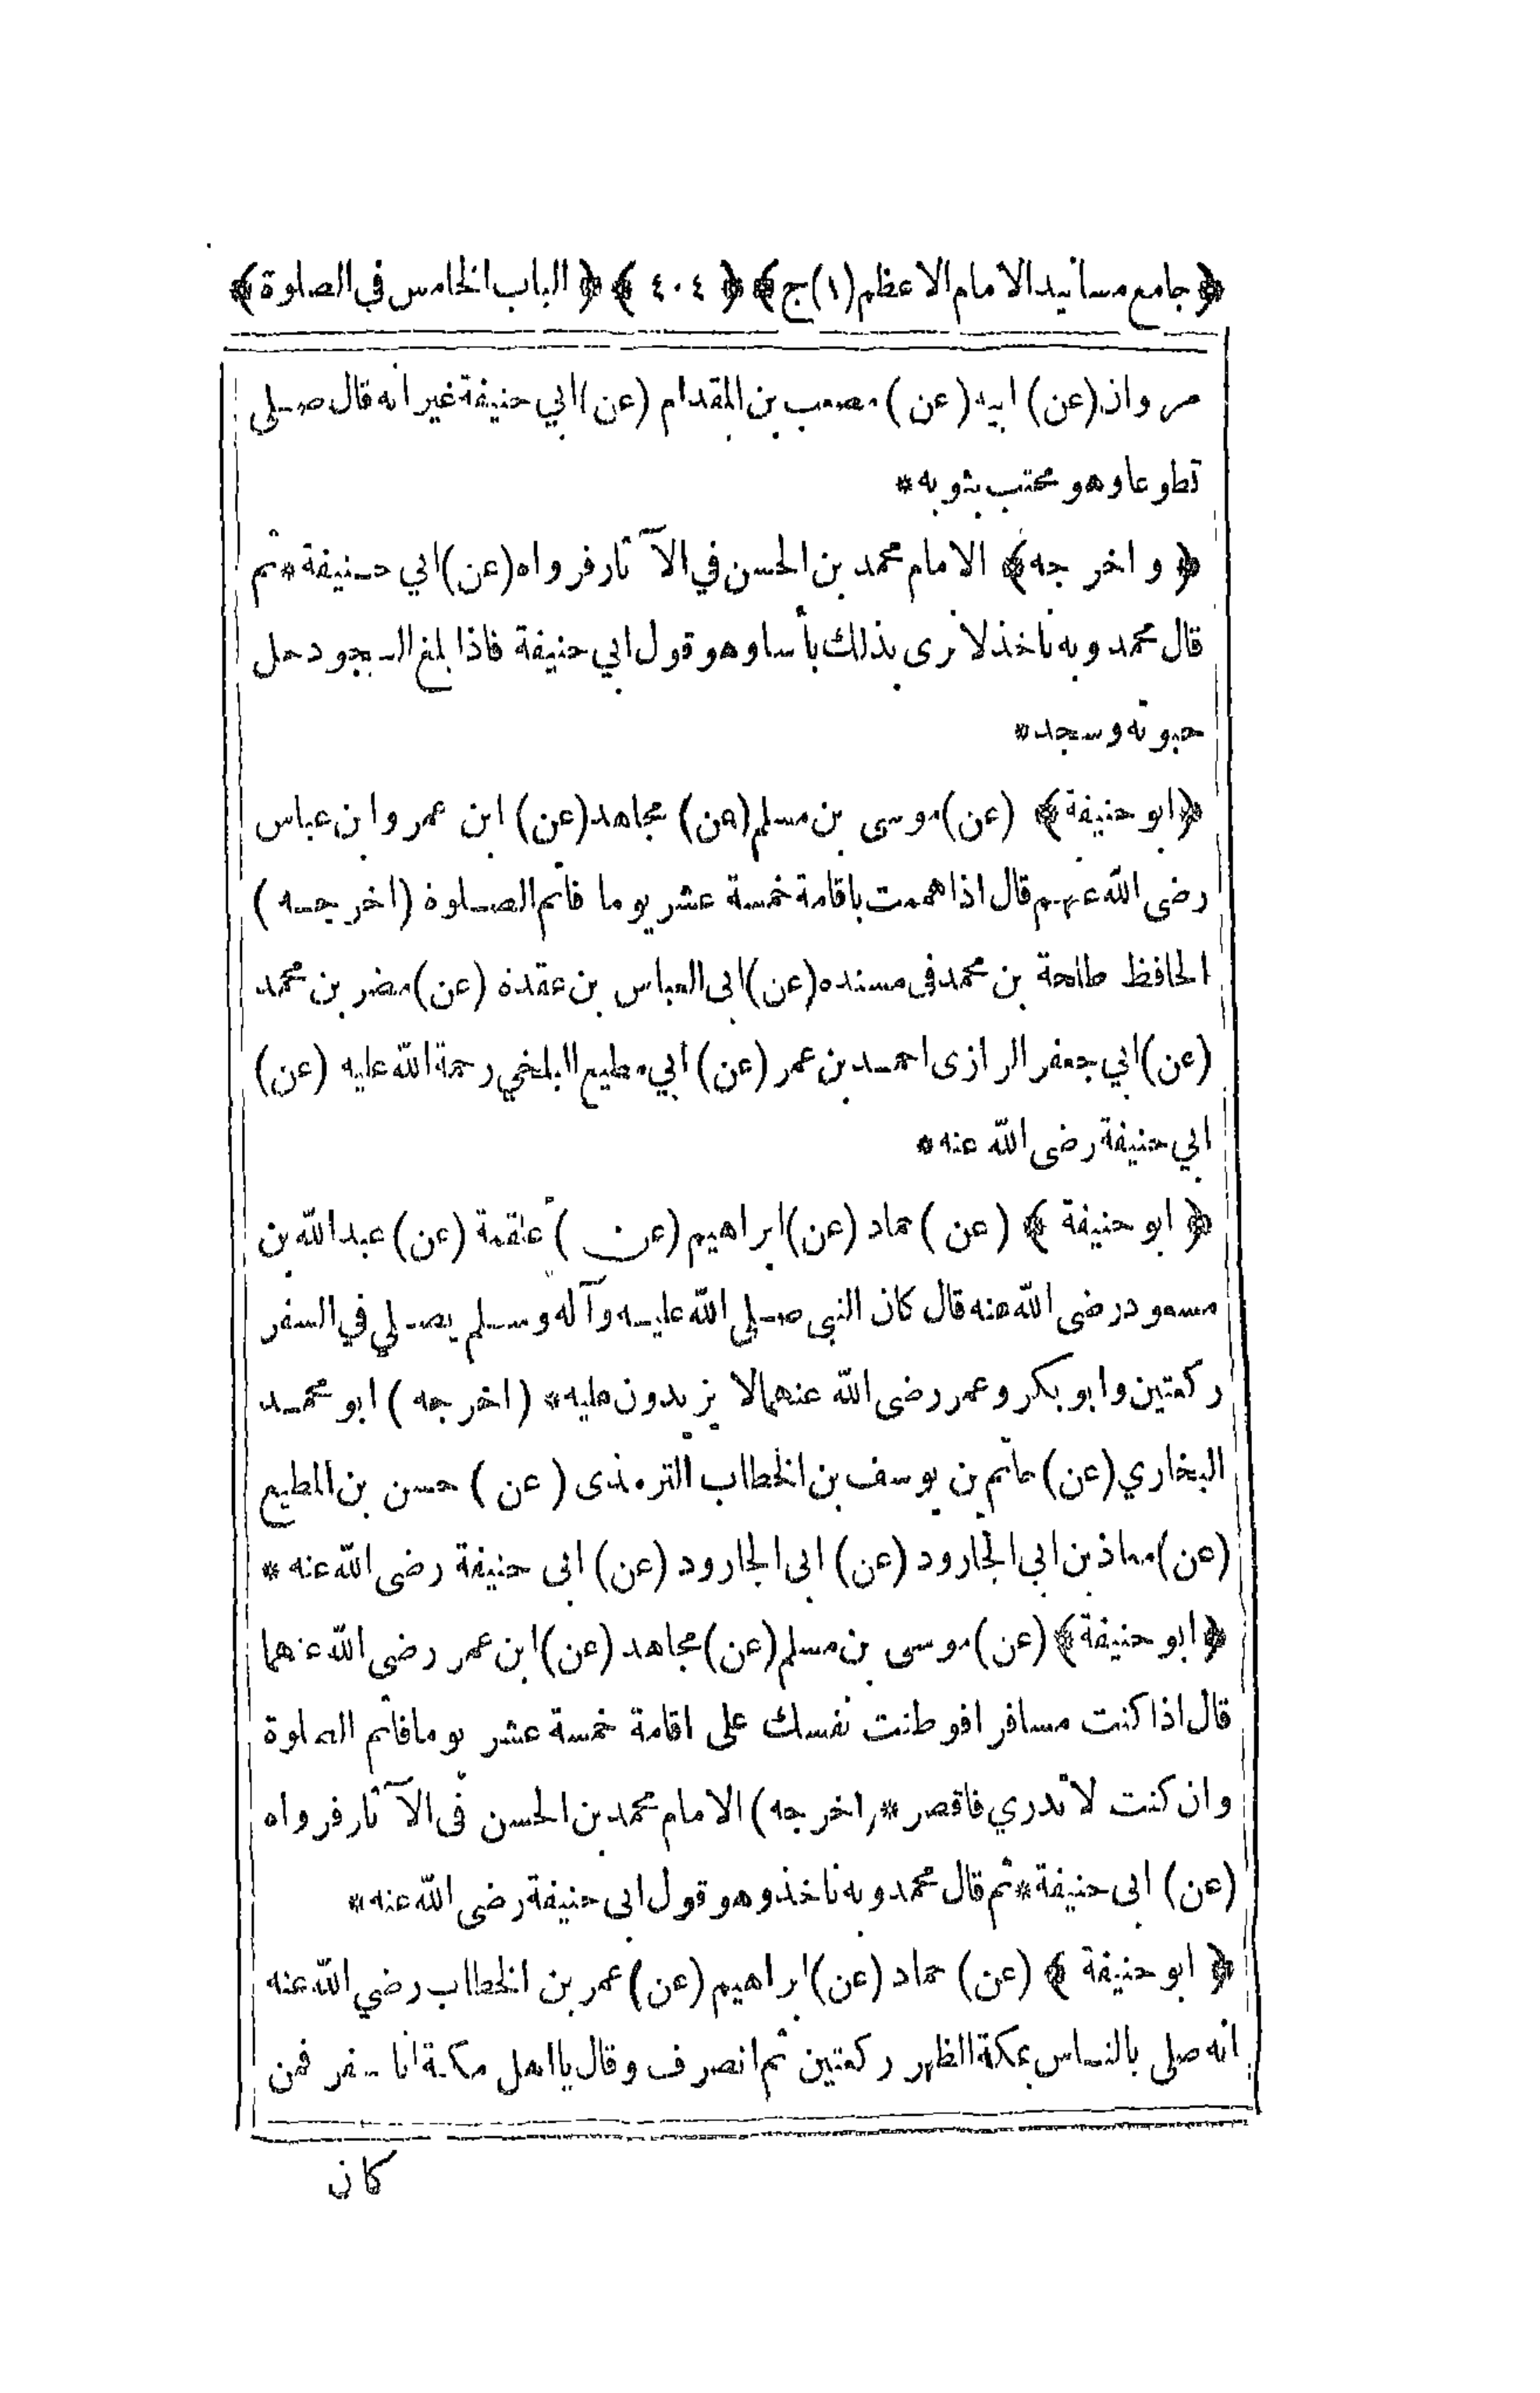 ﴿ جامع مسانيد الامام الاعظم (١) ج ﴾ ﴿ ٤٠٤ ﴾ ﴿ الباب الخامس في الصلوة ﴾
مروان (عن) ابيه (عن) مصعب بن المقدام (عن) ابي حنيفة غير انه قال صلى
تطوعا وهو محتب بثوبه *
﴿ واخرجه ﴾ الامام محمد بن الحسن في الآثار فرواه (عن) ابي حنيفة * ثم
قال محمد وبه ناخذ لا نرى بذلك بأسا وهو قول ابي حنيفة فاذا بلغ السجود حل
حبوته وسجد *
﴿ ابو حنيفة ﴾ (عن) موسى بن مسلم (عن) مجاهد (عن) ابن عمر وابن عباس
رضى الله عنهم قال اذا هممت باقامة خمسة عشر يوما فاتم الصلوة (اخرجه)
الحافظ طلحة بن محمد فى مسنده (عن) ابى العباس بن عقدة (عن) مضر بن محمد
(عن) ابي جعفر الرازى احمد بن عمر (عن) ابي مطيع البلخي رحمة الله عليه (عن)
ابي حنيفة رضى الله عنه *
﴿ ابو حنيفة ﴾ (عن) حماد (عن) ابراهيم (عن) علقمة (عن) عبد الله بن
مسعود رضى الله عنه قال كان النبى صلى الله عليه وآله وسلم يصلي في السفر
ركعتين وابو بكر وعمر رضى الله عنهما لا يزيدون عليه * (اخرجه) ابو محمد
البخاري (عن) حاتم بن يوسف بن الخطاب الترمذى (عن) حسن بن المطيع
(عن) معاذ بن ابي الجارود (عن) ابى الجارود (عن) ابى حنيفة رضى الله عنه *
﴿ ابو حنيفة ﴾ (عن) موسى بن مسلم (عن) مجاهد (عن) ابن عمر رضى الله عنهما
قال اذا كنت مسافرا فوطنت نفسك على اقامة خمسة عشر يوما فاتم الصلوة
وان كنت لا تدري فاقصر * (اخرجه) الامام محمد بن الحسن فى الآثار فرواه
(عن) ابى حنيفة * ثم قال محمد وبه ناخذ وهو قول ابى حنيفة رضى الله عنه *
﴿ ابو حنيفة ﴾ (عن) حماد (عن) ابراهيم (عن) عمر بن الخطاب رضي الله عنه
انه صلى بالناس بمكة الظهر ركعتين ثم انصرف وقال يا اهل مكة انا سفر فمن
كان